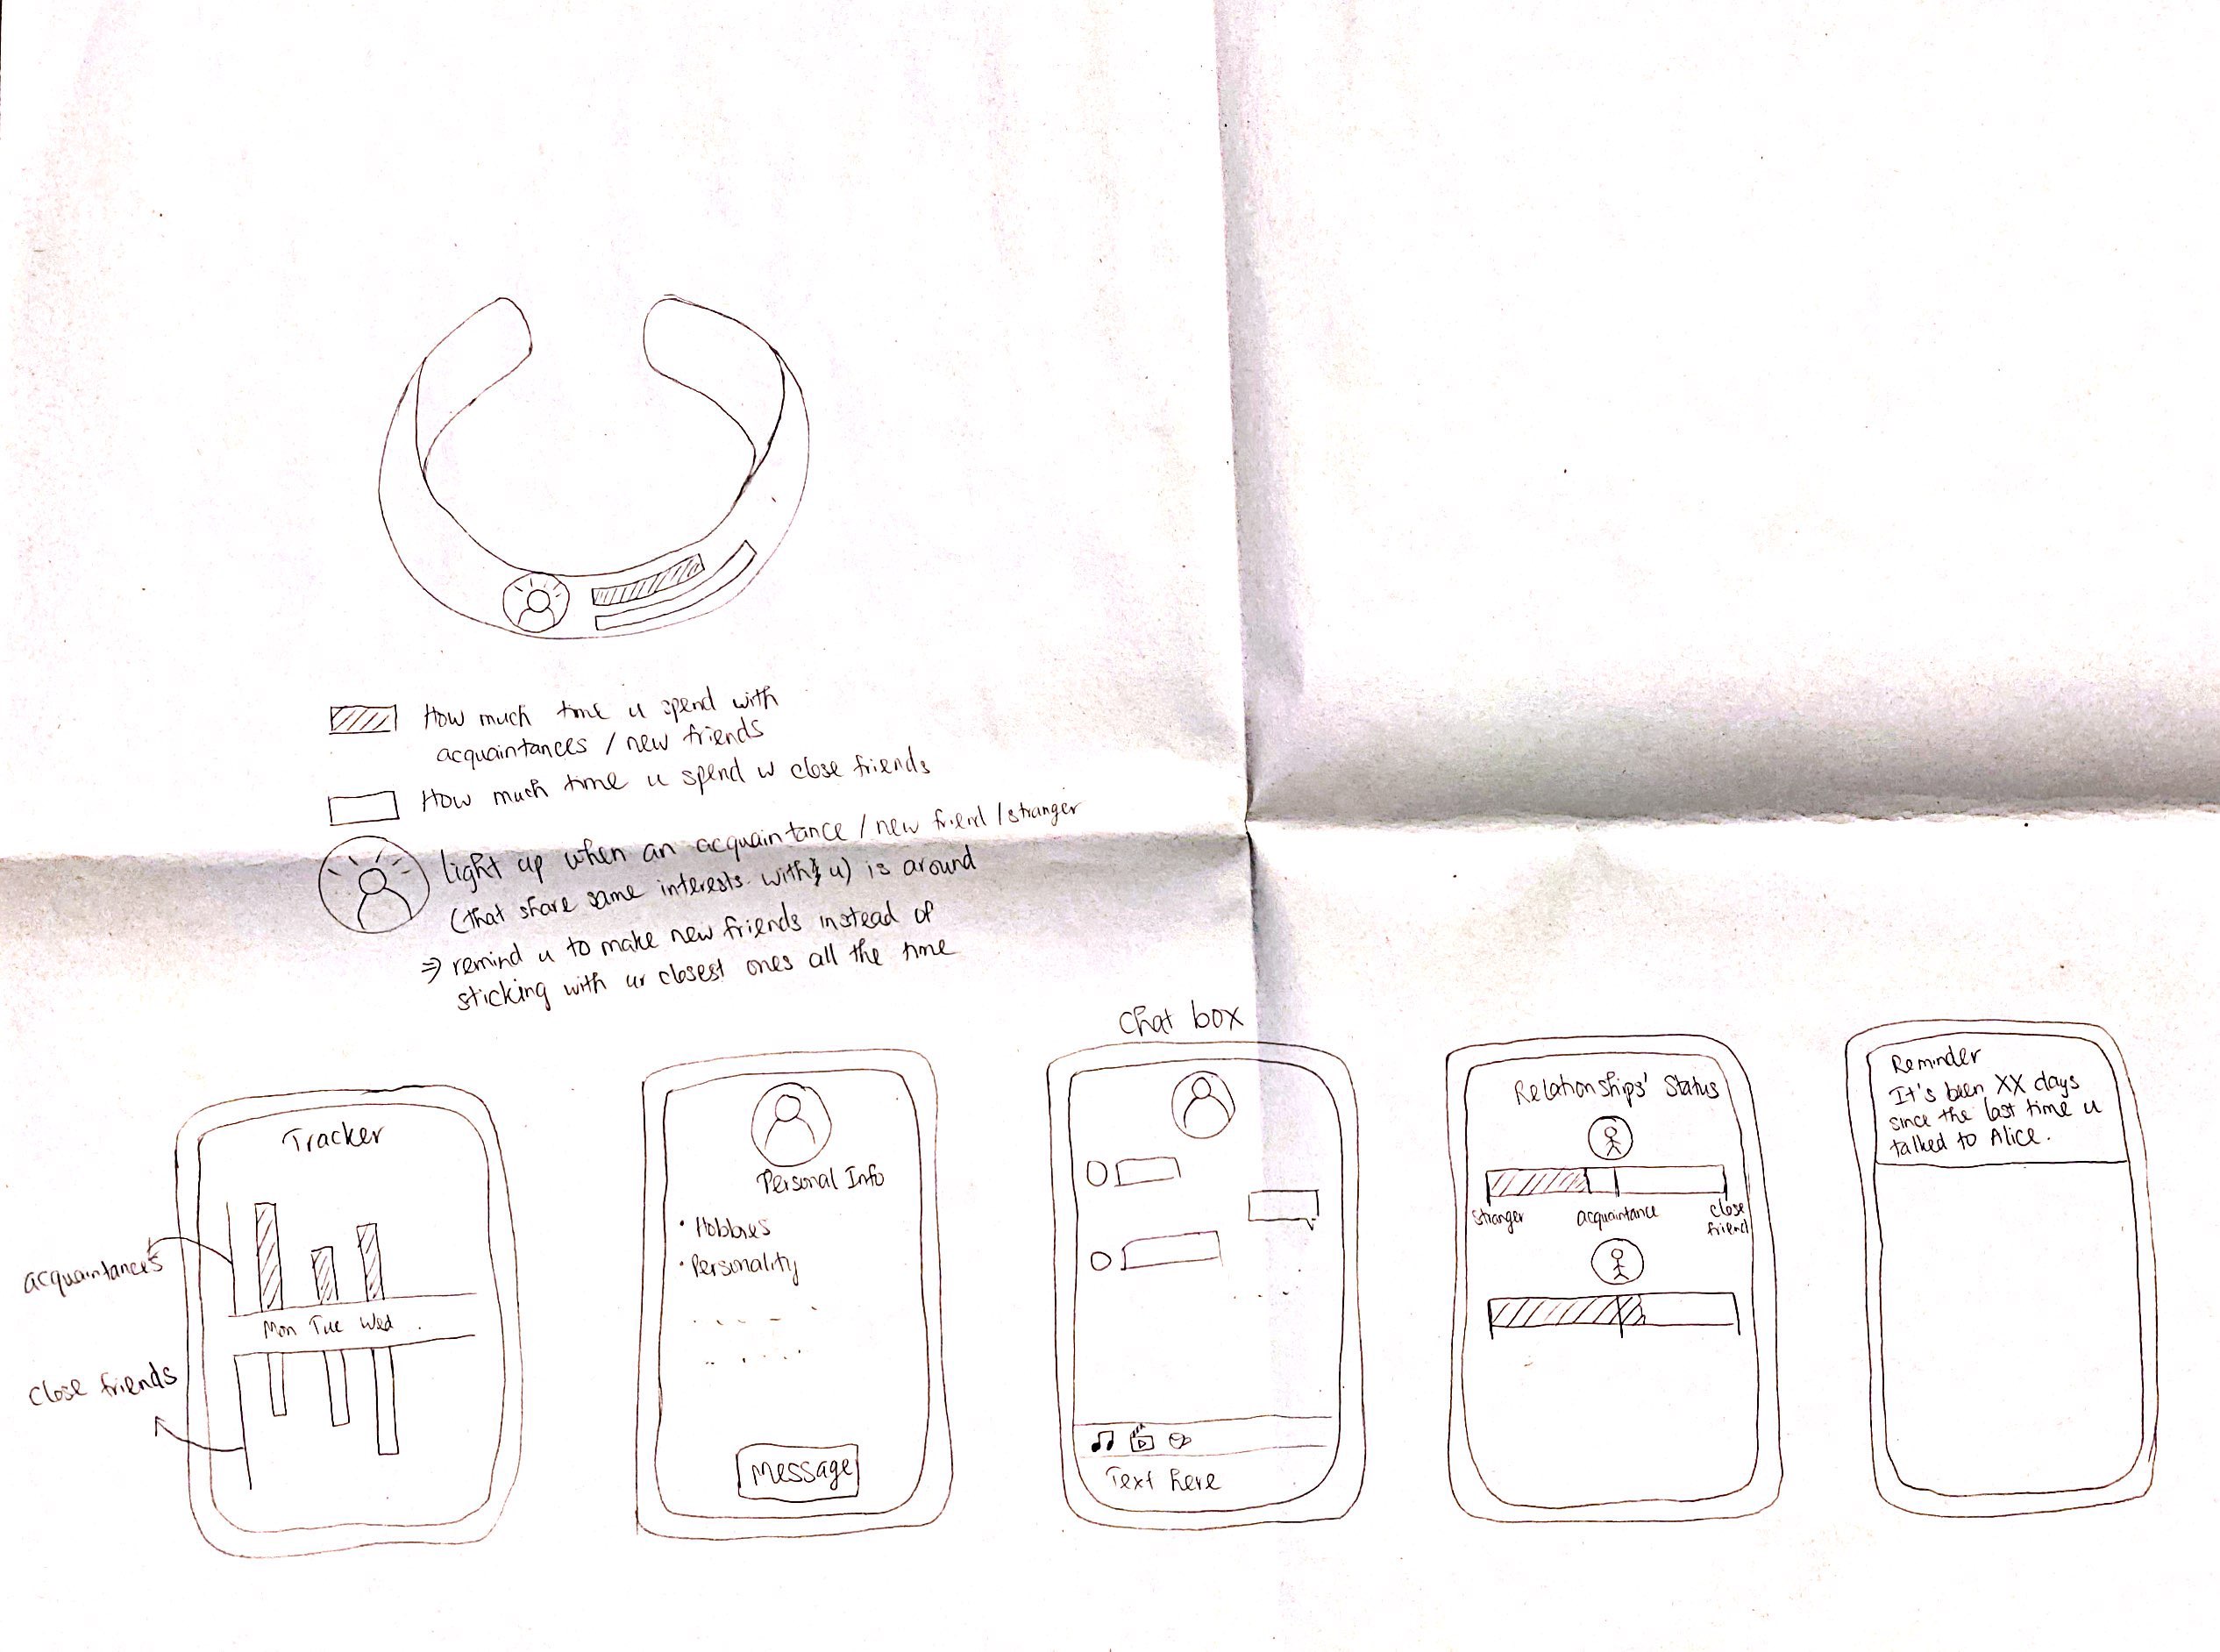 How much time u spend with
acquaintances / new friends
How much time u spend w close friends
light up when an acquaintance / new friend / stranger
(that share same interests with u) is around
⇒ remind u to make new friends instead of
sticking with ur closest ones all the time
Tracker
acquaintances
Mon Tue Wed .
close friends
Personal Info
• Hobbies
• Personality
Message
Chat box
Text here
Relationships' Status
stranger acquaintance close
friend
Reminder
It's been XX days
since the last time u
talked to Alice.